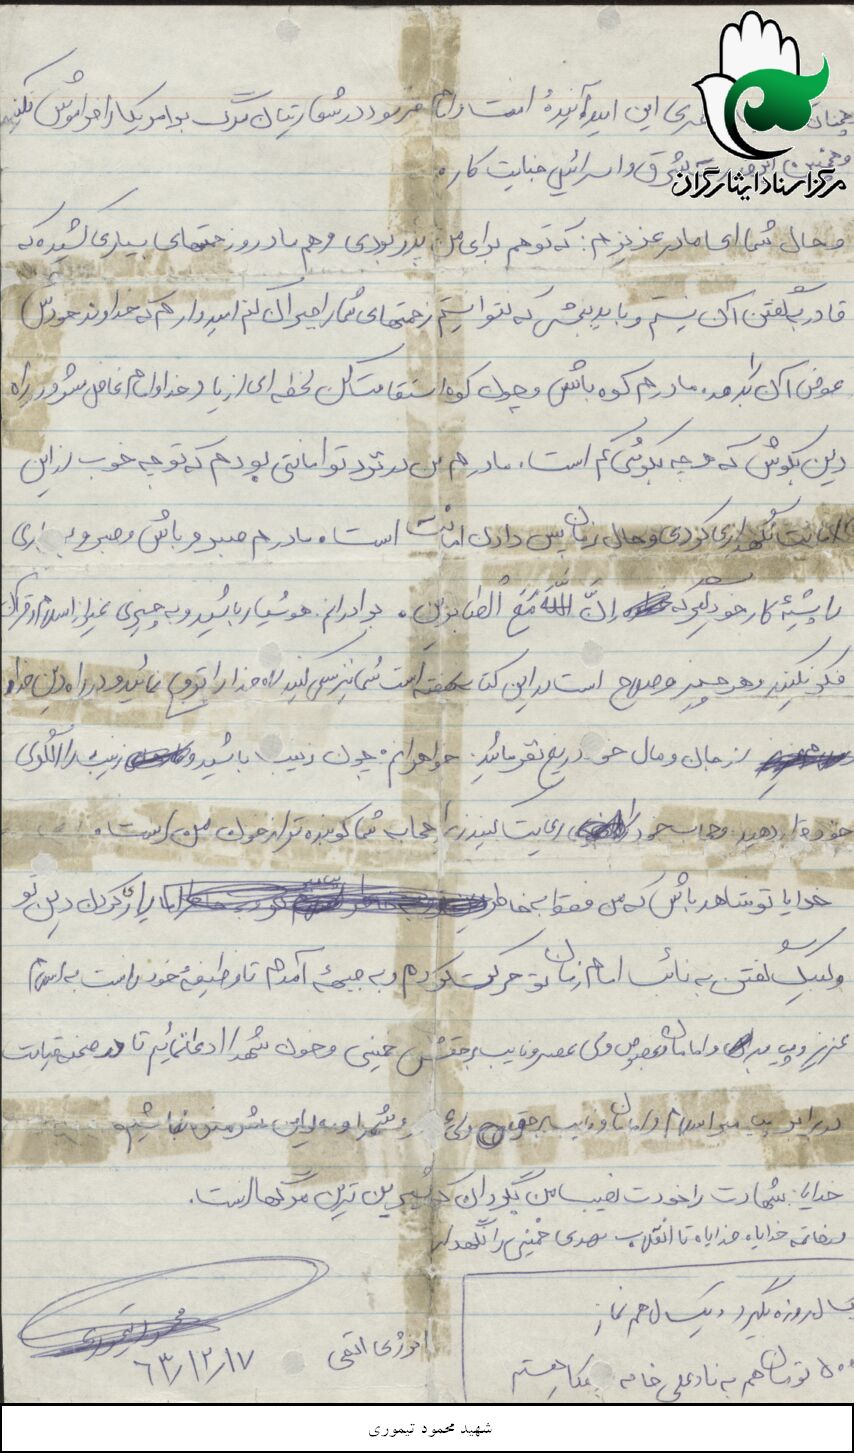 این امید آیندهٔ امت و امام فرمود در شعارتان مرگ بر امریکا را فراموش نکنید
و همچنین شرق و اسرائیل جنایت کار.
مرکز اسناد ایثارگران
و حال شما ای مادر عزیزم: که تو هم برای من پدر بودی و هم مادر و زحمتهای بسیاری کشیدی که
قادر به گفتن آن نیستم و باید ببخشی که نتوانستم زحمتهای شما را جبران کنم امیدوارم که خداوند خودش
عوض آن را بدهد. مادرم کوه باش و چون کوه استقامت کن لحظه ای از یاد خدا و امام غافل مشو و در راه
دین بکوش که هر چه بکوشی کم است. مادرم من در نزد تو امانتی بودم که تو چه خوب از این
امانت نگهداری کردی و حال زمان پس دادن امانت است. مادرم صبور باش و صبر و بردباری
را پیشهٔ کار خود گیر که إنَّ اللهَ مَعَ الصّابرین. برادرانم. هوشیار باشید و به چیزی غیر از اسلام و قرآن
فکر نکنید و هر چیز و صلاح است در این کتاب گفته است شما نیز سعی کنید راه خدا را ترویج نمائید و در راه دین خدا
از جان و مال خود دریغ نفرمائید. خواهرانم. چون زینب باشید و زینب را الگوی
خود قرار دهید. و حجاب خود را رعایت کنید زیرا حجاب شما کوبنده تر از خون من است.
خدایا تو شاهد باش که من فقط به خاطر یاری کردن دین تو
و لبیک گفتن به نائب امام زمان تو حرکت کردم و به جبهه آمدم تا وظیفهٔ خود را نسبت به اسلام
عزیز و پیامبر و امامان معصوم ولی عصر و نایب برحقش خمینی و خون شهدا ادا نمایم تا در صحنه قیامت
در برابر پیامبر اسلام و امامان و نایب برحق و شهدا شرمنده نباشیم.
خدایا: شهادت را خودت نصیب من بگردان که شیرین ترین مرگهاست.
در خاتمه خدایا، خدایا، تا انقلاب مهدی خمینی را نگهدار
سال روزه بگیرد و یکسال هم نماز
تومان هم به نادعلی
محمود تیموری
۶۳/۱۲/۱۷
شهید محمود تیموری